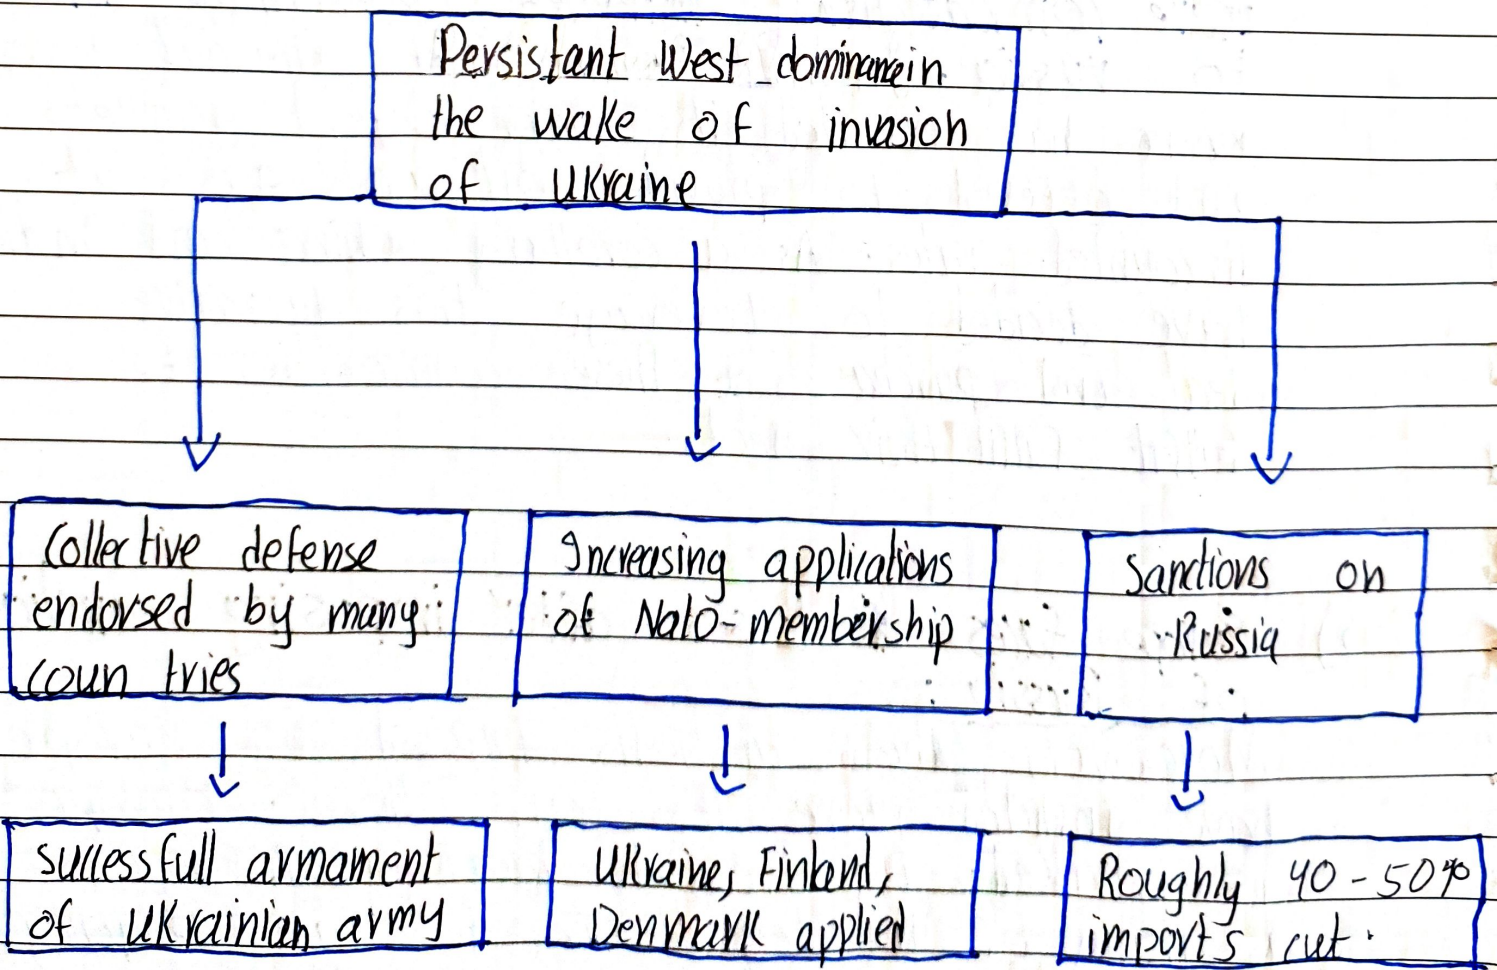 Persistant West-dominance in
the wake of invasion
of Ukraine
Collective defense
endorsed by many
coun tries
Increasing applications
of Nato-membership
Sanctions on
Russia
successfull armament
of Ukrainian army
Ukraine, Finland,
Denmark applied
Roughly 40-50%
imports cut.